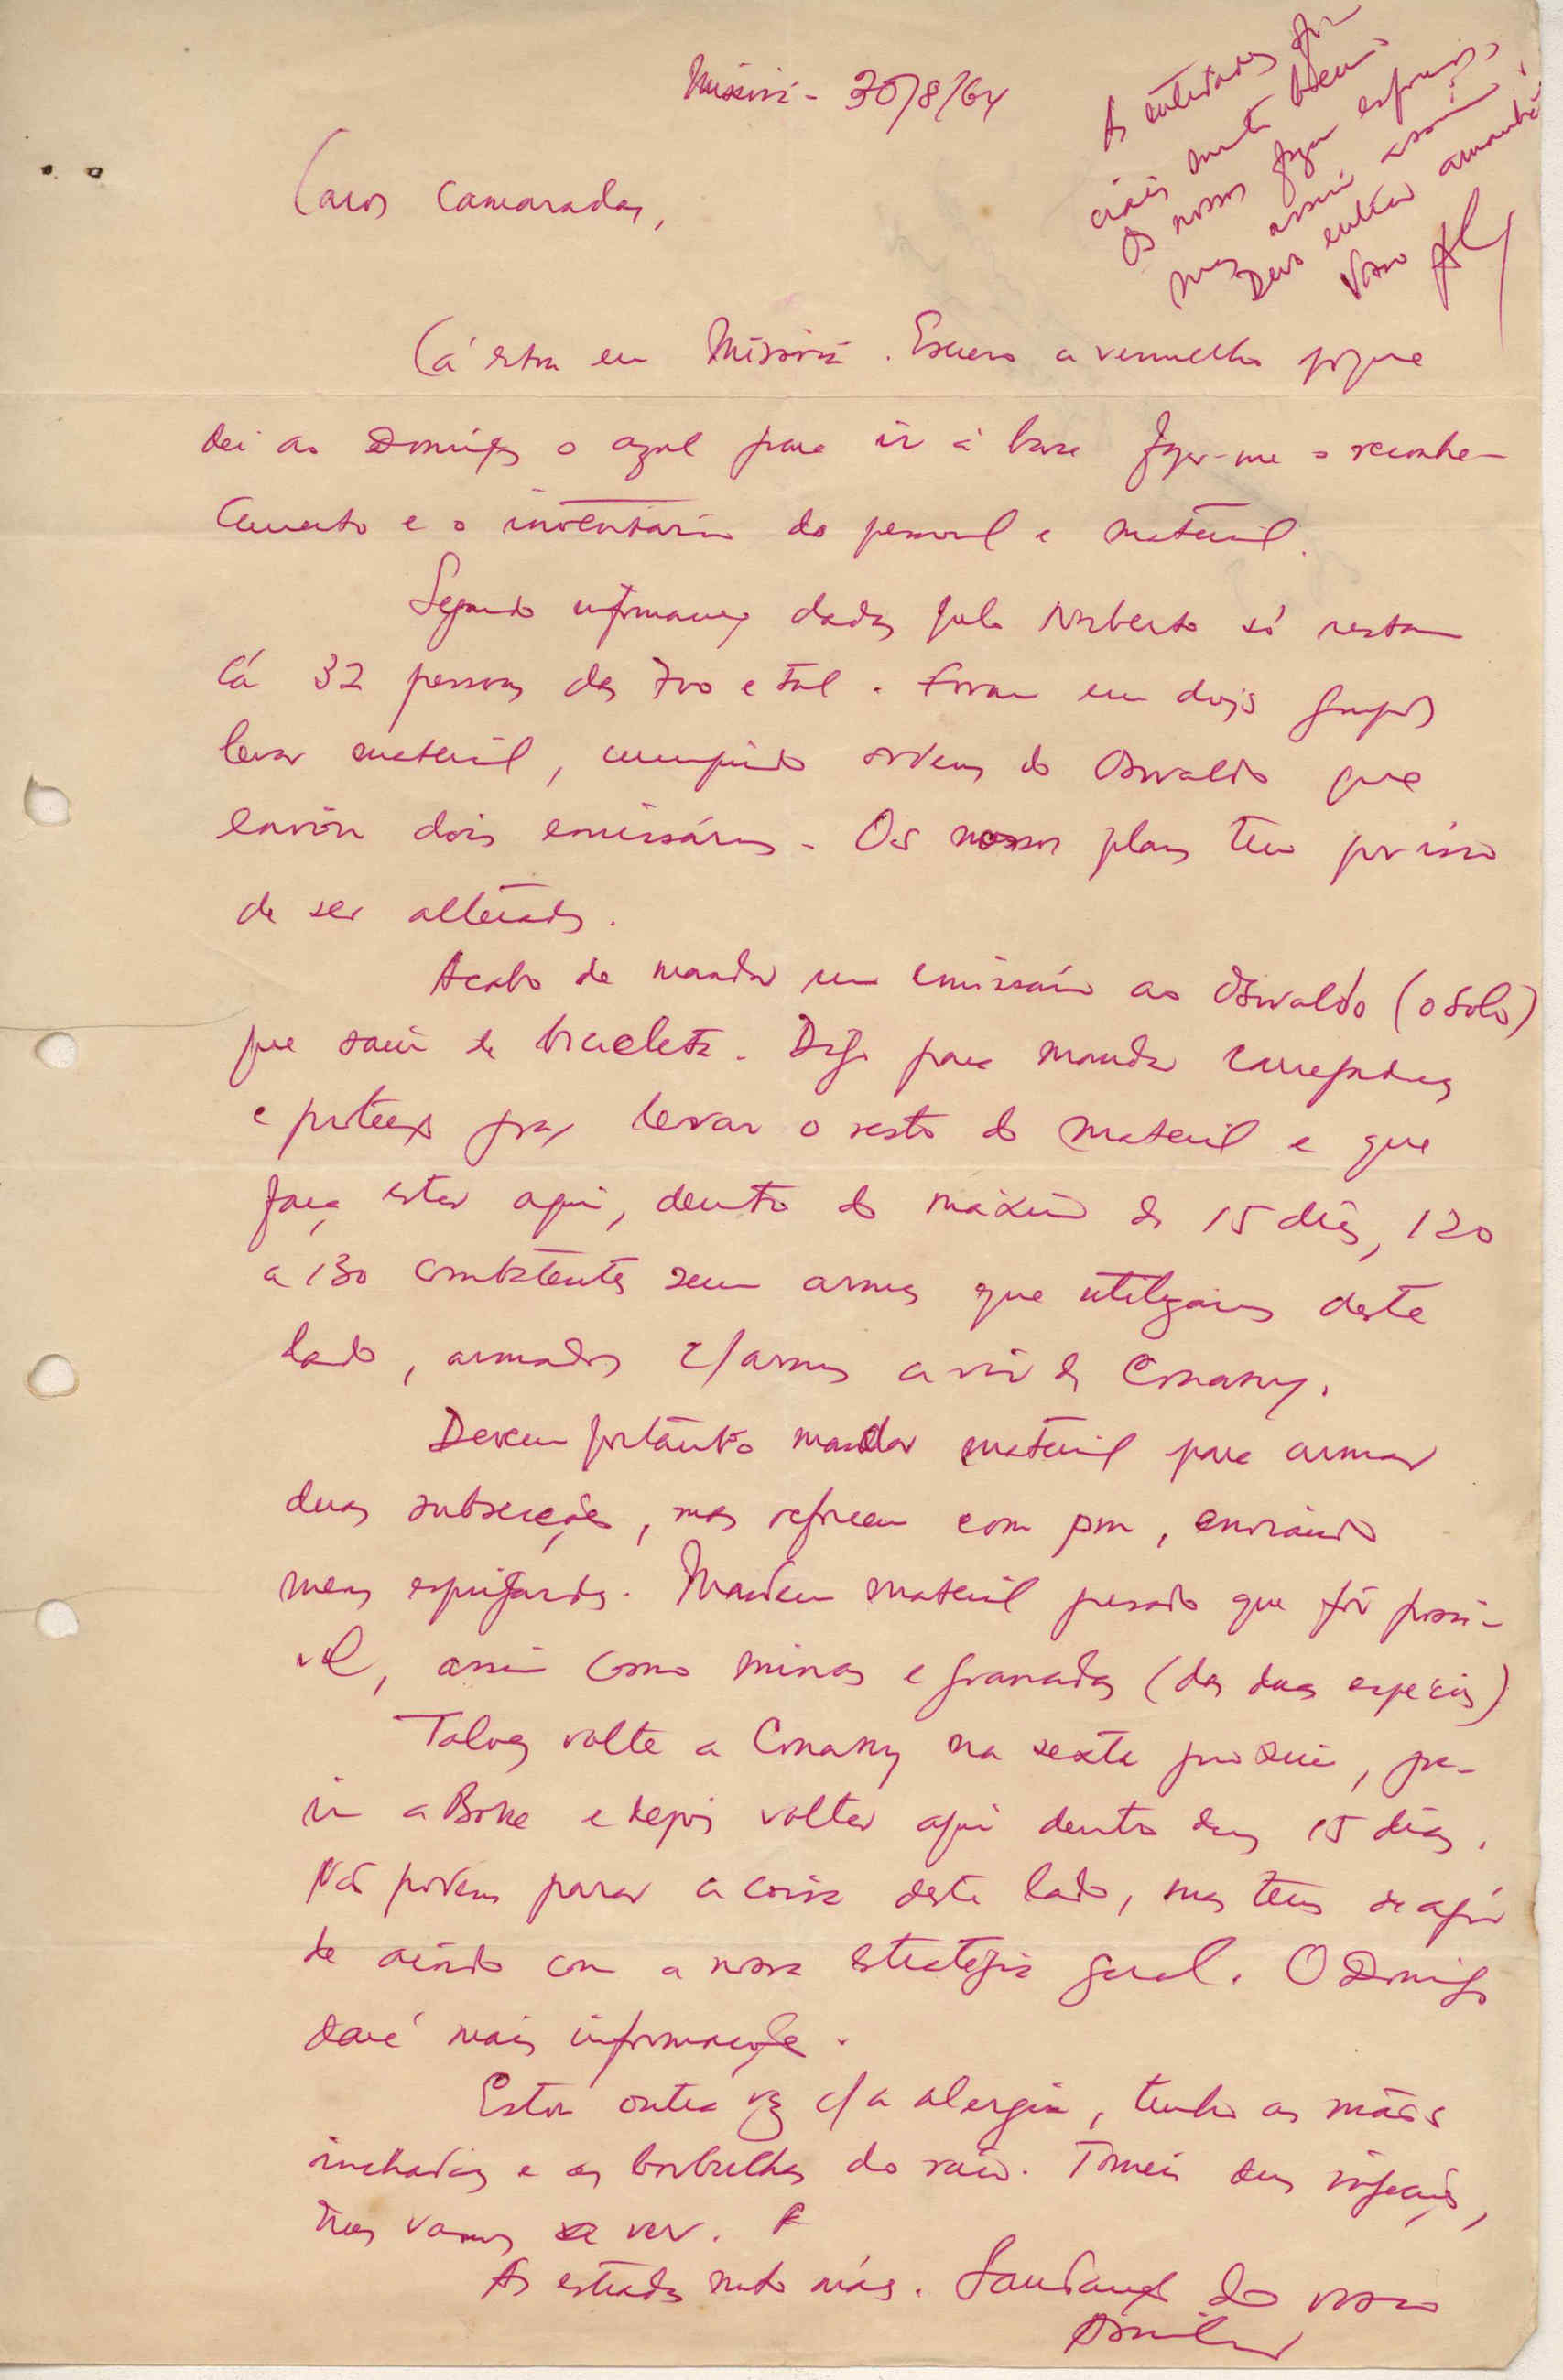 Missirá - 30/8/64
As entidades ofi-
ciais muito bem.
Os nossos fazem esforços,
mas assim assim.
Devo entrar amanhã.
Vosso AC
Caros camaradas,
Cá estou em Missirá. Escrevo a vermelho porque
dei ao Domingos o azul para ir à base fazer-me o reconhe-
cimento e o inventário do pessoal e material.
Segundo informações dadas pelo Norberto só restam
cá 32 pessoas das 700 e tal. Foram em dois grupos
levar material, cumprindo ordens do Osvaldo que
enviou dois emissários. Os nossos planos têm por isso
de ser alterados.
Acabo de mandar um emissário ao Osvaldo (o Solo)
que saiu de bicicleta. Digo para mandar carregadores
e protecção para levar o resto do material e que
faça estar aqui, dentro do máximo de 15 dias, 120
a 130 combatentes sem armas que utilizaremos deste
lado, armados c/armas a vir de Conakry.
Devem portanto mandar material para armar
duas subsecções, mas reforcem com pm, enviando
menos espingardas. Mandem material pesado que fôr possí-
vel, assim como minas e granadas (das duas espécies)
Talvez volte a Conakry na sexta próxima, para
ir a Boké e depois voltar aqui dentro duns 15 dias.
Não podemos parar a coisa deste lado, mas temos de agir
de acordo com a nossa estratégia geral. O Domingos
dará mais informações.
Estou outra vez c/a alergia, tenho as mãos
inchadas e as borbulhas do raio. Tomei duas injecções,
mas vamos a ver.
As estradas muito más. Saudações do vosso
Amílcar